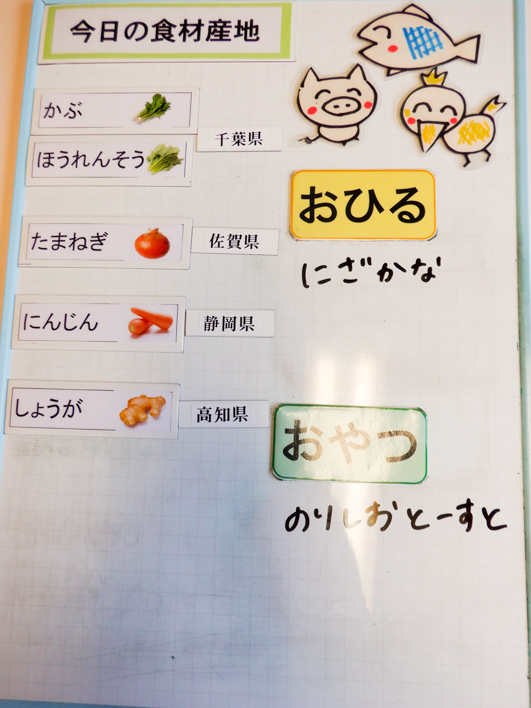 今日の食材産地
かぶ
千葉県
ほうれんそう
たまねぎ
佐賀県
にんじん
静岡県
しょうが
高知県
おひる
にざかな
おやつ
のりしおとーすと